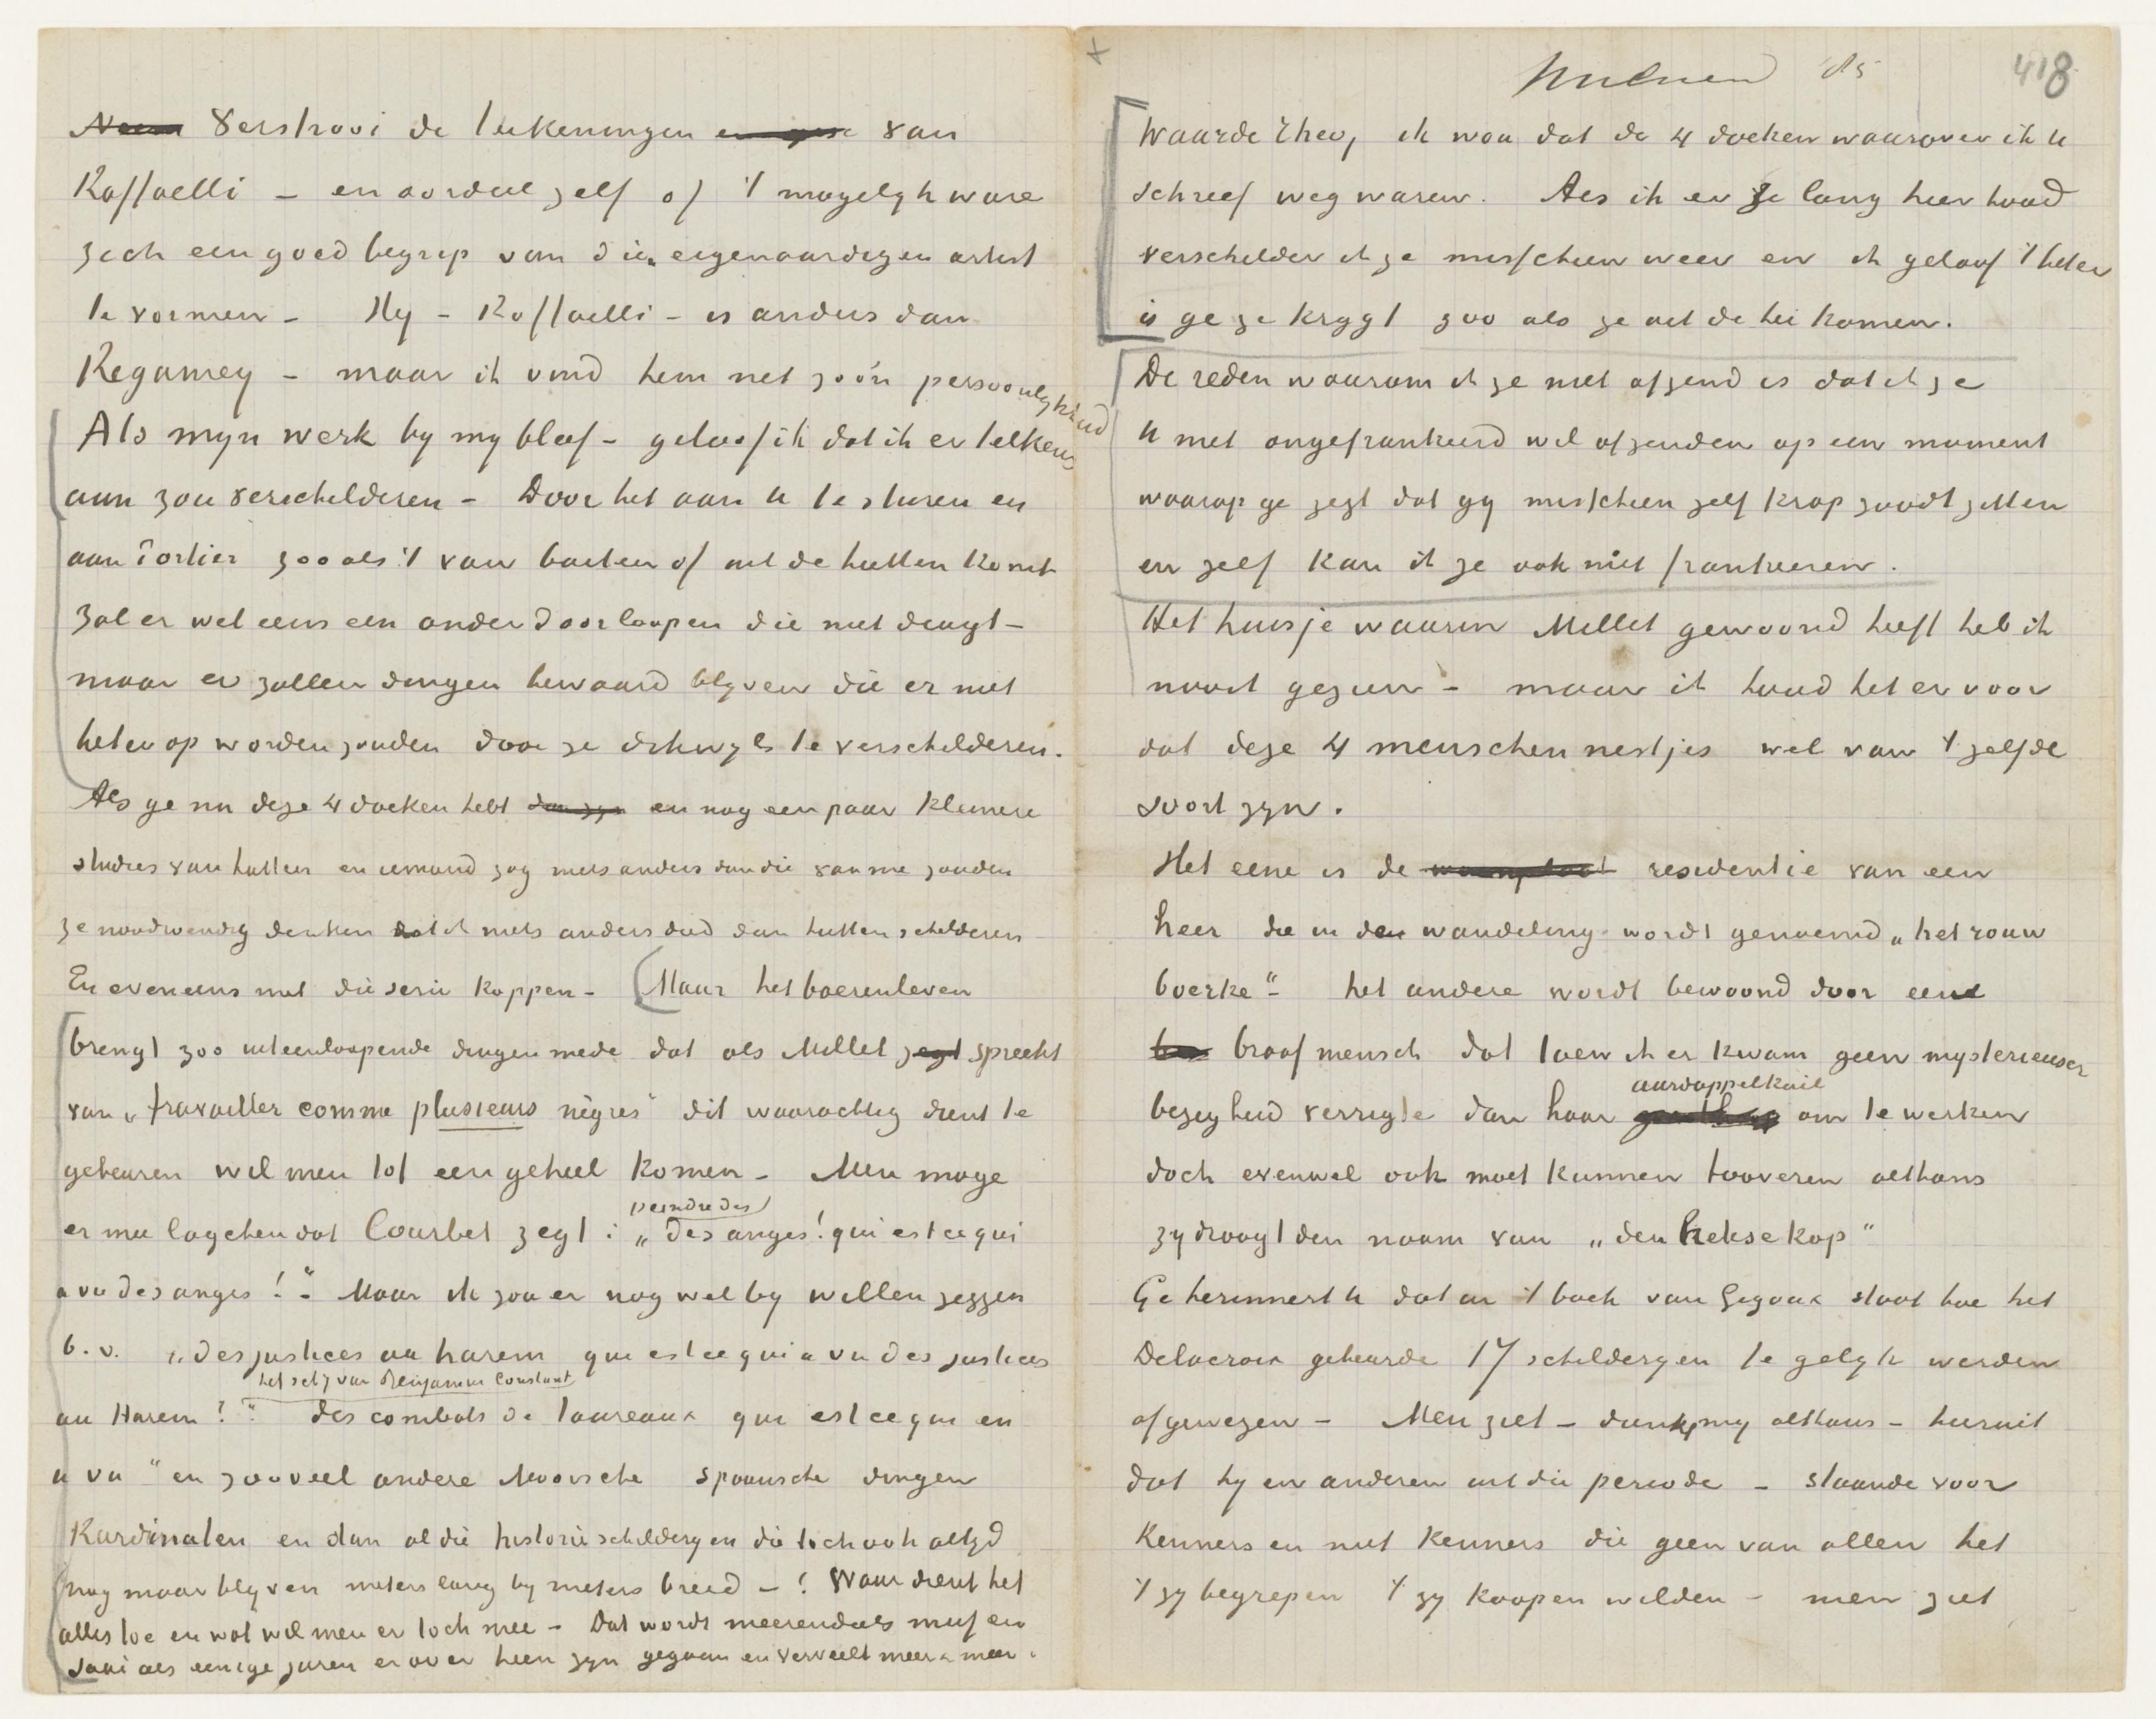 ~~Neem~~ Verstrooi de teekeningen van
Raffaelli – en oordeel zelf of 't mogelijk ware
zich een goed begrip van dien eigenaardigen artist
te vormen – Hij – Raffaelli – is anders dan
Regamey – maar ik vind hem net zoo'n persoonlijkheid
Als mijn werk bij mij bleef – geloof ik dat ik er telkens
aan zou verschilderen – Door het aan U te sturen en
aan Portier zooals 't van buiten of uit de hutten komt
zal er wel eens een onder doorloopen die niet deugt –
maar er zullen dingen bewaard blijven die er niet
beter op worden zouden door ze dikwijls te verschilderen.
Als ge nu deze 4 doeken hebt ~~dan zijn~~ en nog een paar kleinere
studies van hutten en iemand zag niets anders dan die van me zouden
ze noodwendig denken dat ik niets anders deed dan hutten schilderen
En eveneens met die serie koppen – Maar het boerenleven
brengt zoo uiteenloopende dingen mede dat als Millet ~~zegt~~ spreekt
van „travailler comme plusieurs nègres" dit waarachtig dient te
gebeuren wil men tot een geheel komen – Men moge
er mee lagchen dat Courbet zegt: „peindre des
des anges! qui est ce qui
a vu des anges!" Maar ik zou er nog wel bij willen zeggen
b.v. „des justices au harem qui est ce qui a vu des justices
het schij van Benjamin Constant
au Harem?" des combats de taureaux qui est ce qui en
a vu" en zooveel andere Moorsche Spaansche dingen
Kardinalen en dan al die historieschilderijen die toch ook altijd
nog maar blijven meters lang bij meters breed –! Waar dient het
alles toe en wat wil men er toch mee – Dat wordt meerendeels muf en
saai als eenige jaren er over heen zijn gegaan en verveelt meer & meer.
Nuenen 85
418
Waarde Theo, ik wou dat de 4 doeken waarover ik U
schreef weg waren. Als ik er ze lang hier houd
verschilder ik ze misschien weer en ik geloof 't beter
is ge ze krijgt zoo als ze uit de hei komen.
De reden waarom ik ze niet afzend is dat ik ze
U niet ongefrankeerd wil afzenden op een moment
waarop ge zegt dat gij misschien zelf krap zoudt zitten
en zelf kan ik ze ook niet frankeeren.
Het huisje waarin Millet gewoond heeft heb ik
nooit gezien – maar ik houd het er voor
dat deze 4 menschennestjes wel van 't zelfde
soort zijn.
Het eene is de ~~woonplaat~~ residentie van een
heer die in den wandeling wordt genoemd „het rouw
boerke" – het andere wordt bewoond door eene
braaf mensch dat toen ik er kwam geen mysterieuser
aardappelkuil
bezigheid verrigte dan haar om te werken
doch evenwel ook moet kunnen tooveren althans
zij draagt den naam van „den heksekop"
Ge herinnert U dat in 't boek van Gigoux staat hoe het
Delacroix gebeurde 17 schilderijen te gelijk werden
afgewezen – Men ziet – dunkt mij althans – hieruit
dat hij en anderen uit die periode – staande voor
kenners en niet kenners die geen van allen het
't zij begrepen 't zij koopen wilden – men ziet